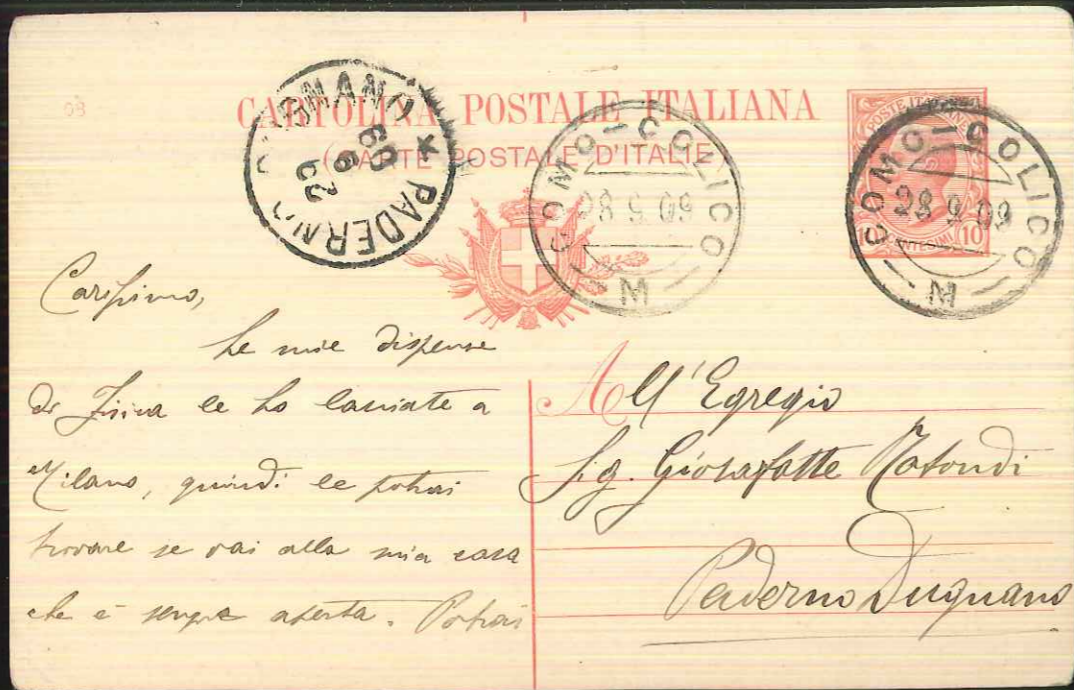 08
CARTOLINA POSTALE ITALIANA
(CARTE POSTALE D'ITALIE)
PADERNO DUGNANO
29 9 09
COMO-COLICO
28 9 09
M
COMO-COLICO
28 9 09
M
POSTE ITALIANE
CENTESIMI 10
Carissimo,
Le mie dispense
di Fisica le ho lasciate a
Milano, quindi le potrai
trovare se vai alla mia casa
che è sempre aperta. Potrai
All'Egregio
Sig. Giosafatte Rotondi
Paderno Dugnano